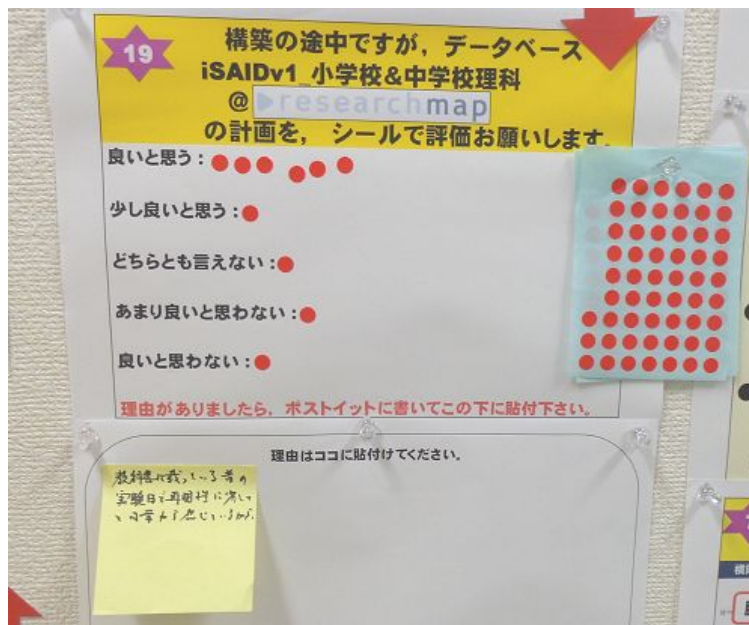 19
構築の途中ですが，データベース
iSAIDv1_小学校&中学校理科
@ researchmap
の計画を， シールで評価お願いします.
良いと思う：
少し良いと思う：
どちらとも言えない：
あまり良いと思わない：
良いと思わない：
理由がありましたら，ポストイットに書いてこの下に貼付下さい。
理由はココに貼付けてください。
教科書に載っている昔の